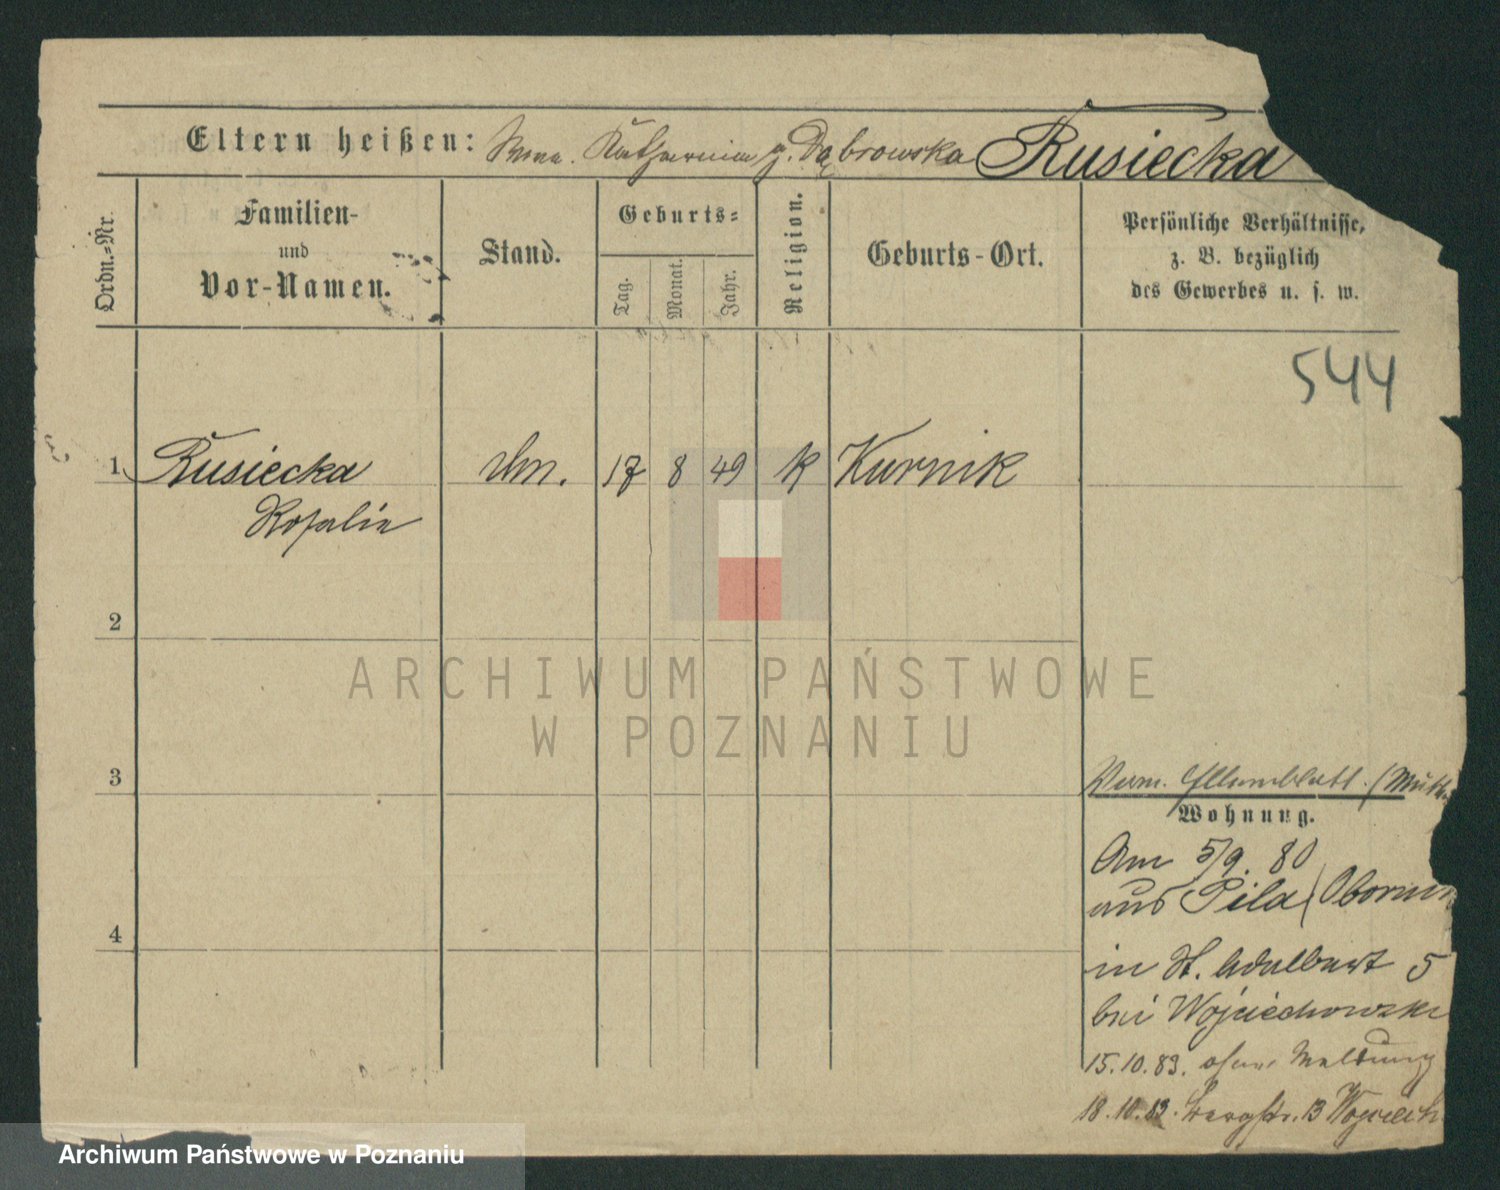 Eltern heißen: Katharina g. Dąbrowska Rusiecka
Ordn.-Nr.
Familien-
und
Vor-Namen.
Stand.
Geburts-
Tag.
Monat.
Jahr.
Religion.
Geburts-Ort.
Persönliche Verhältnisse,
z. B. bezüglich
des Gewerbes u. s. w.
544
1 Rusiecka 17 8 49 k Kurnik
Rosalie
2
3
4
ARCHIWUM PAŃSTWOWE
W POZNANIU
Wohnung.
Am 5/9. 80
aus Pila (Obornik
in St. Adalbert 5
bei Wojciechowski
15.10.83. ohne Meldung
18.10.83. Bergstr. 13 Wojciech
Archiwum Państwowe w Poznaniu